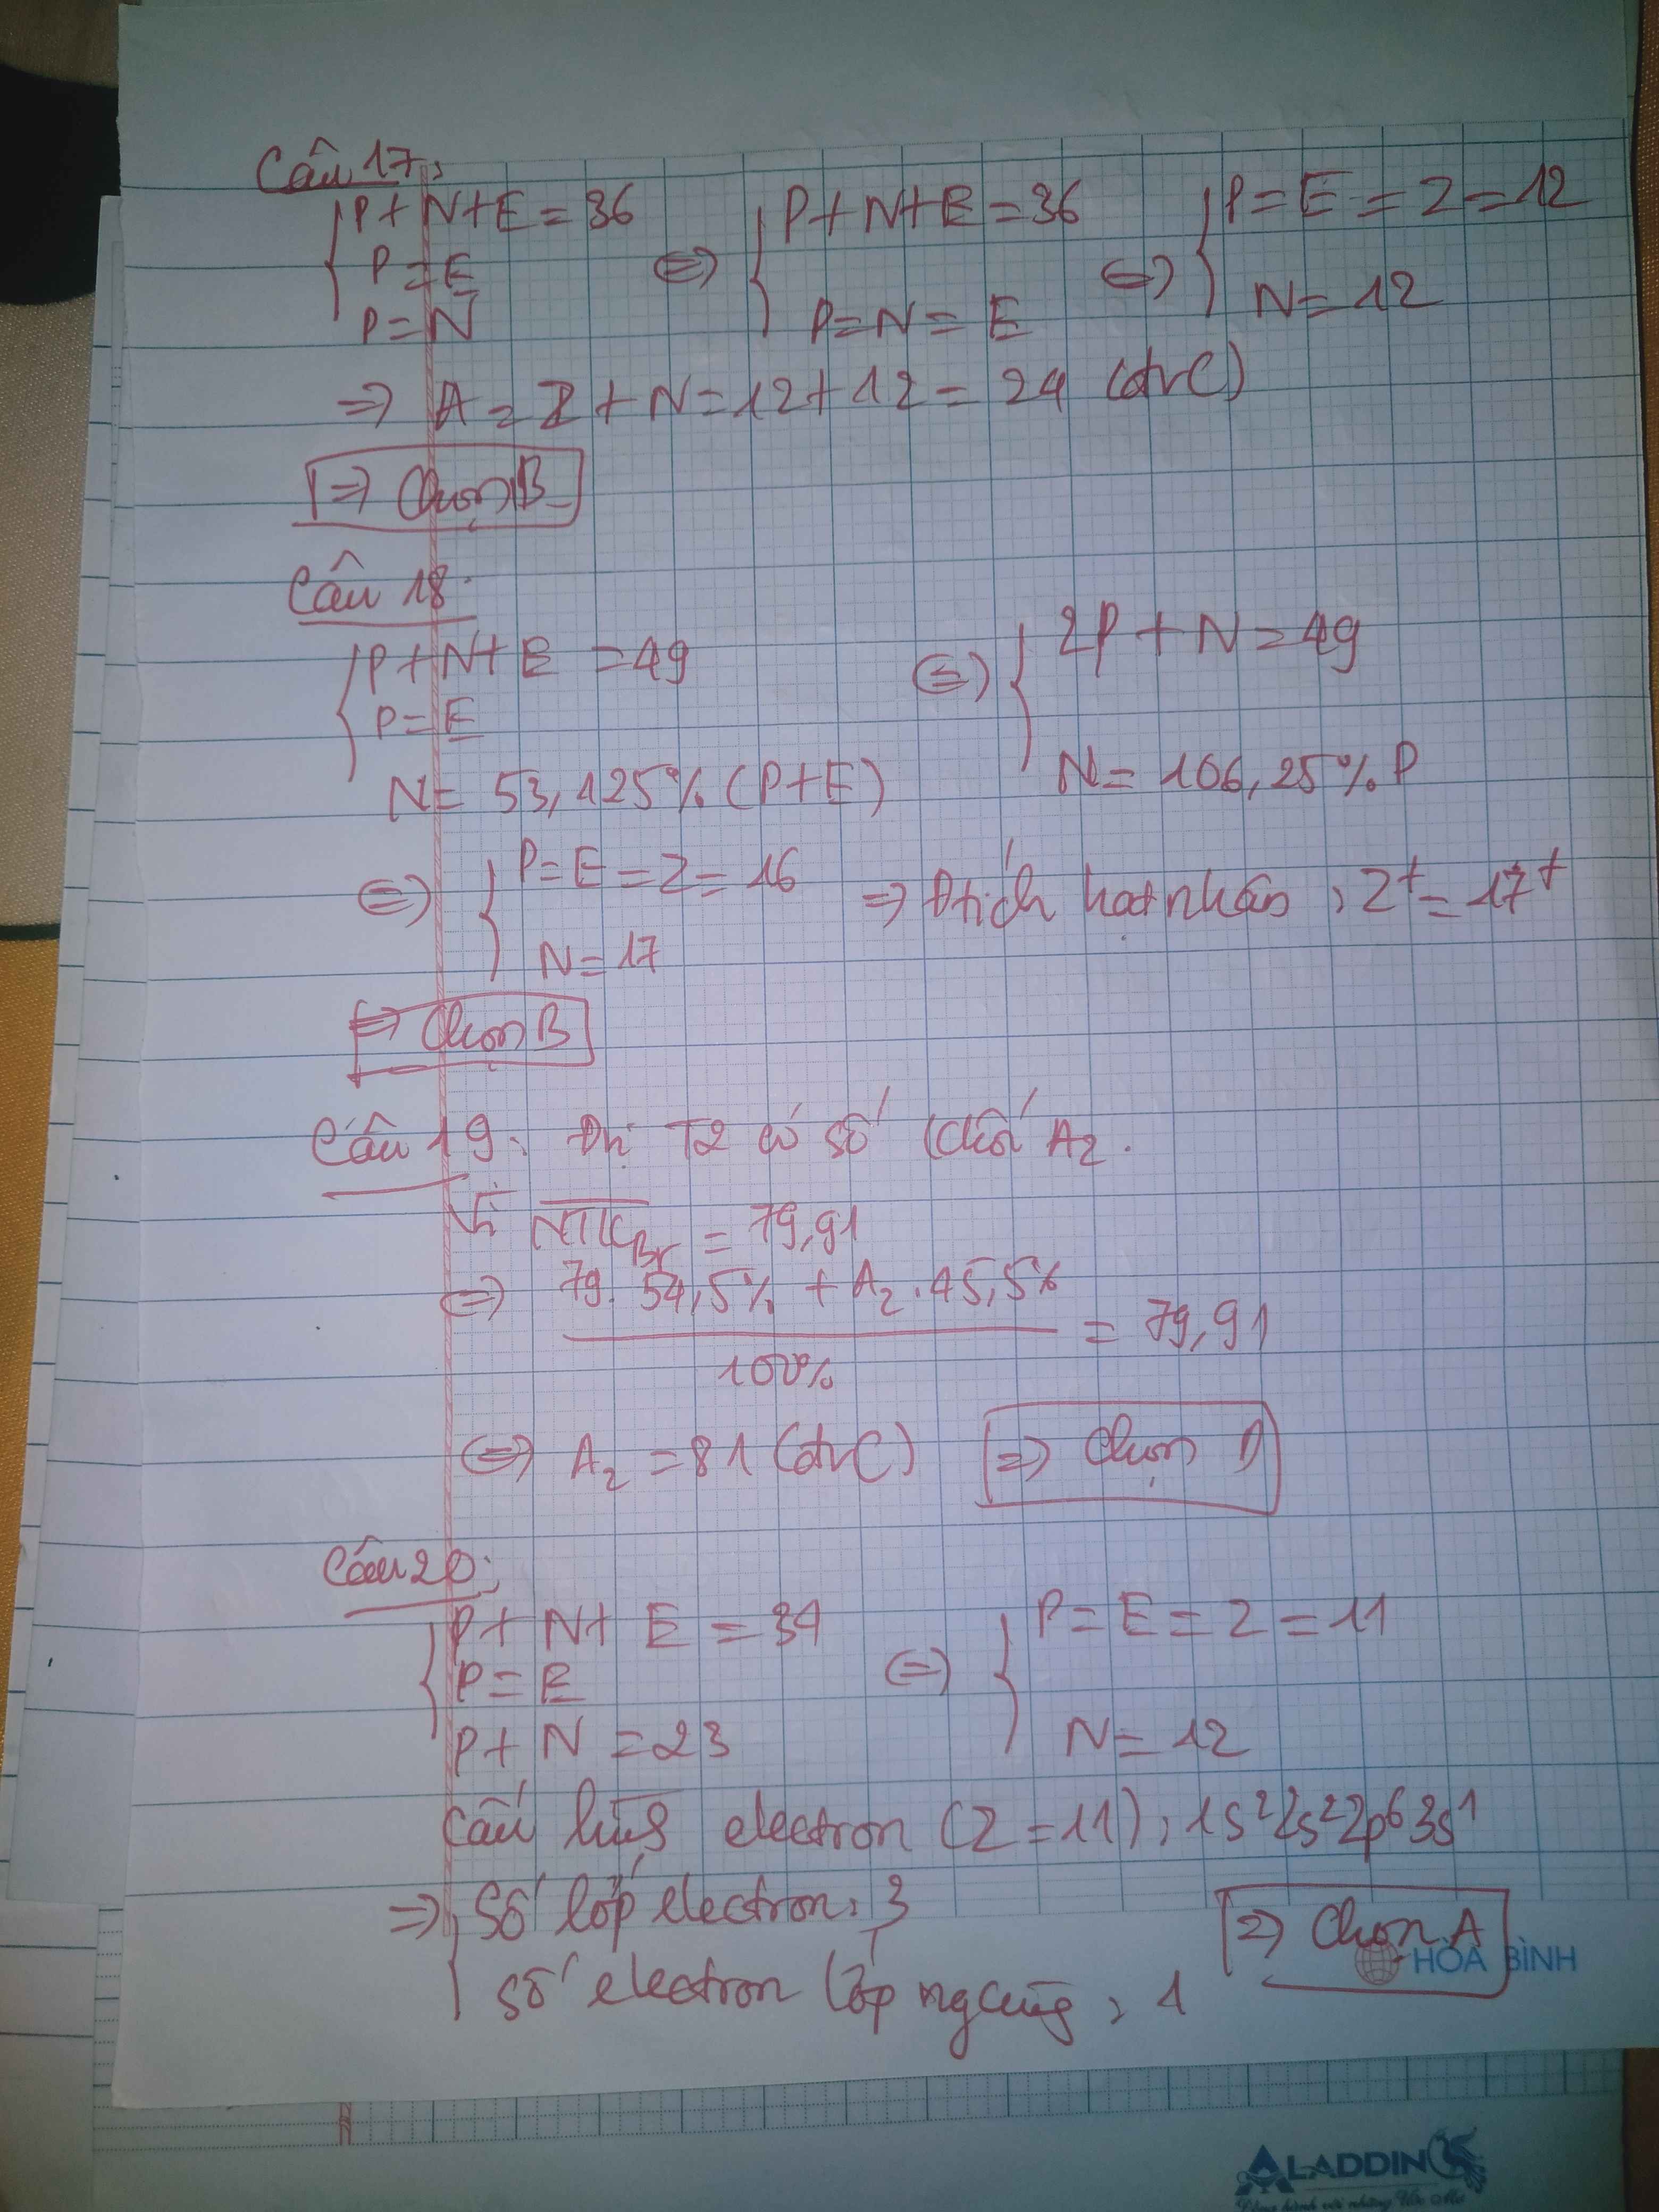 Câu 17:
P+N+E=36
P=E
P=N
⇔ P+N+E=36
P=N=E
⇔ P=E=Z=12
N=12
⇒ A=Z+N=12+12=24 (đvC)
⇒ Chọn B
Câu 18:
P+N+E=49
P=E
N=53,125%(P+E)
⇔ 2P+N=49
N=106,25%P
⇔ P=E=Z=16
N=17
⇒ Đtích hạt nhân: Z+=17+
⇒ Chọn B
Câu 19: Đvị T2 có số khối A₂.
Vì NTK_Br = 79,91
⇔ (79.54,5% + A₂.45,5%)/100% = 79,91
⇔ A₂=81 (đvC)
⇒ Chọn D
Câu 20:
P+N+E=34
P=E
P+N=23
⇔ P=E=Z=11
N=12
Cấu hình electron (Z=11): 1s²2s²2p⁶3s¹
⇒ Số lớp electron: 3
Số electron lớp ngcùng: 1
⇒ Chọn A
HÒA BÌNH
ALADDIN